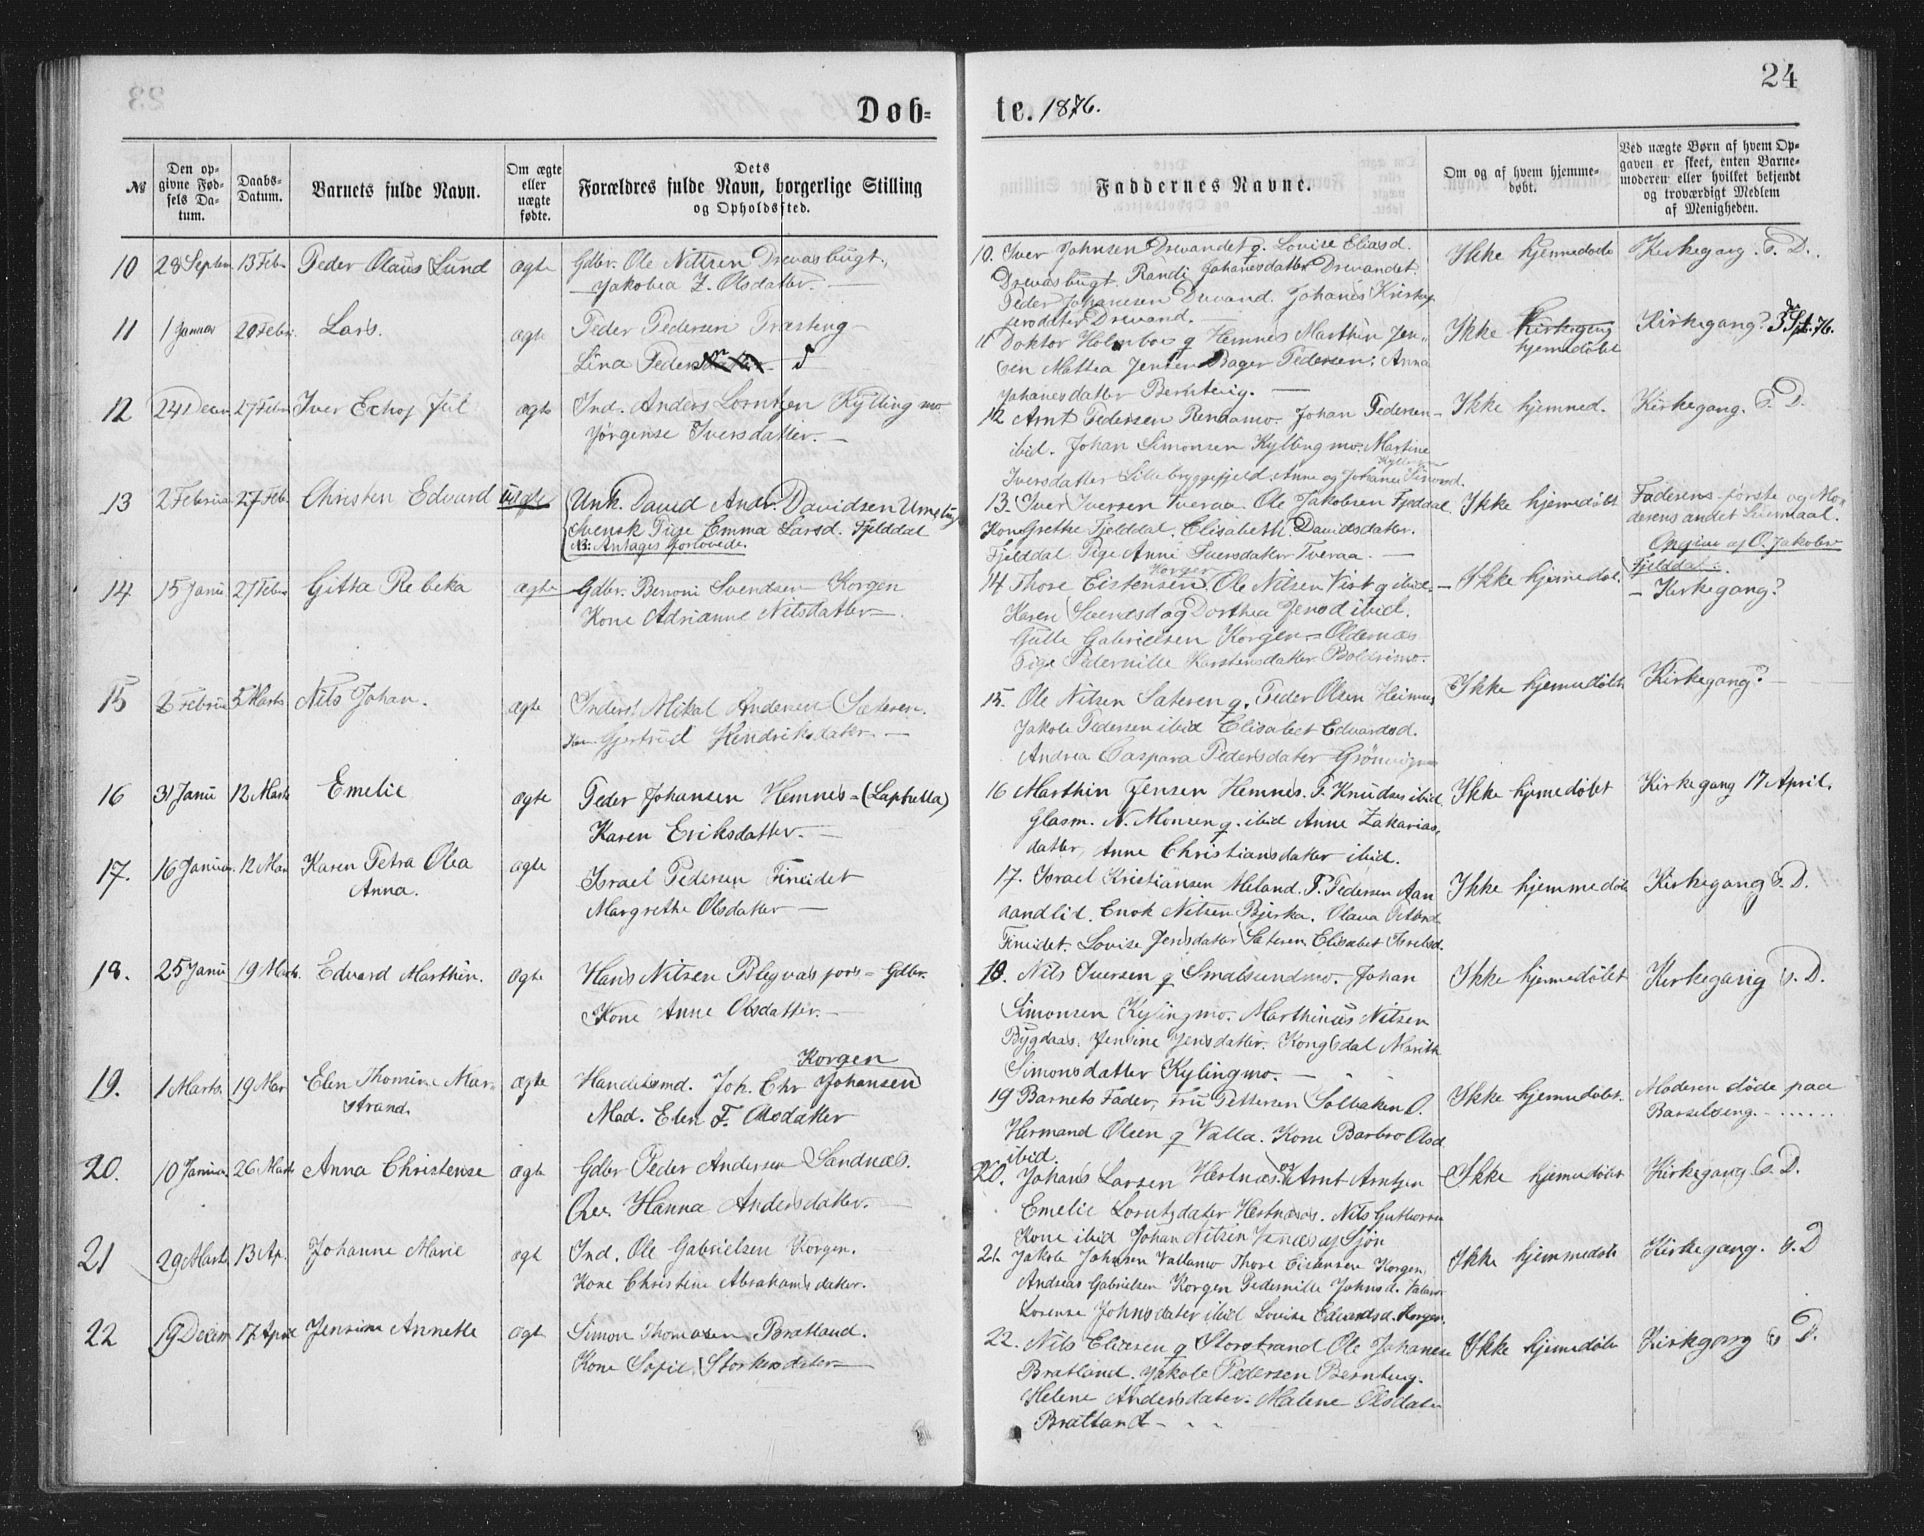 24
Døb=te. 1876.
№
Den opgivne Fødsels Datum.
Daabs-Datum.
Barnets fulde Navn.
Om ægte eller uægte fødte.
Dets Forældres fulde Navn, borgerlige Stilling og Opholdssted.
Faddernes Navne.
Om og af hvem hjemmedøbt.
Ved uægte Børn af hvem Opgaven er skeet, enten Barnemoderen eller hvilket bekjendt og troværdigt Medlem af Menigheden.
10 28 Septem 13 Febr Peder Olaus Lund ægte Gdbr. Ole Nilsen Drevasbugt.
Jakobea Z. Olsdatter.
10. Iver Johnsen Drevandet g. Lovise Eliasd.
Drevasbugt. Randi Johanesdatter Drevandet.
Peder Johannesen Drevand. Johanes Kristof
fersdatter Drevand.
Ikke hjemmedøbt Kirkegang. s. D.
11 1 Januar 20 Febr. Lars. ægte Peder Pedersen Træsteng
Lina Peders
11 Doktor Holmboe g Hemnes Marthin Jen
sen Mattea Jensen Bager Pedersen. Anna
Johanesdatter Bernteig.
Ikke Kirkegang hjemmedøbt Kirkegang? 3 Spt. 76.
12 24 Decm 27 Febr Iver Echof Jul ægte Ind. Anders Lorntsen Kyllingmo
Jørgense Iversdatter.
12 Arnt Pedersen Rendamo. Johan Pedersen
ibid. Johan Simonsen Kyllingmo. Martine
Iversdatter Anne og Johanes Simonsd.
Ikke hjemmed. Kirkegang. s. D.
13 2 Februar 27 Feb. Christen Edvard uægte Unk. David Andr. Davidsen
Svensk Pige Emma Larsd. Fjelddal
NB: Antages forlovede.
13. Iver Iversen Tveraa. Ole Jakobsen Fjelddal
Kone Grethe Fjelddal. Elisabeth Davidsdatter.
Fjelddal Pige Anne Iversdatter Tveraa.
Ikke hjemmedøbt Faderens første og Mo
derens andet Leiermaal.
Opgive af O. Jakobsen
Fjelddal.
14 15 Janu 27 Febr Gitta Rebeka ægte Gdbr. Benoni Svendsen Korgen
Kone Adrianne Nilsdatter.
14 Thore Eistensen Korgen Ole Nilsen Vist g ibid.
Karen Svendsd og Dorthea Jensd ibid.
Gabrielsen Korgen Oldernæs
Pige Pedernille Karstensdatter.
Ikke hjemmedøbt Kirkegang?
15 Februa 5 Marts Nils Johan. ægte Inders. Mikal Andersen Sæteren.
Kon. Gjertrud Hendriksdater.
15. Ole Nilsen Sæteren g. Peder Olsen
Jakob Pedersen ibid Elisabet Edvardsd.
Andrea Caspara Pedersdater
Ikke hjemmedøbt Kirkegang?
16 31 Janu 12 Marts Emelie ægte Peder Johansen Hemnes (Laphella)
Karen Eriksdatter.
16 Marthin Jensen Hemnes. P. Knudsen ibid
Glasm. N. Monsen g. ibid Anne Zakarias
datter, Anne Christiansdatter ibid.
Ikke hjemedøbt Kirkegang 17 April.
17. 16 Januar. 12 Mar Karen Petra Olea
Anna. ægte Israel Pedersen Fineidet
Margrethe Olsdatter
17. Israel Kristiansen Meland. P. Pedersen Aan
aandlid. Enok Nilsen Bjerka. Olava
Fineidet. Lovise Jensdatter Sæteren Elisabet Israelsd.
Ikke hjemmedøbt Kirkegang s. D.
18. 25 Janu 19 Marts. Edvard Marthin. ægte Hans Nilsen Gdbr.
Kone Anne Olsdatter.
18. Nils Iversen g Smalsundmo. Johan
Simonsen Kylingmo. Marthinus Nilsen
Bygdaas. Jensine Jensdatter. Kongsdal Marith
Simonsdatter Kylingmo.
Ikke hjemmedøbt Kirkegang s. D.
19. 1 Marts. 19 Mar Elen Thomine Mar
strand. ægte Handelsmd. Joh. Chr Johansen Korgen
Mad. Elen F. Olsdatter
19 Barnets Fader, Fru Pettersen Solbaken O.
Hermand Olsen g Valla. Kone Barbro Olsd
ibid.
Ikke hjemmedøbt. Moderen døde paa
Barselseng.
20. 10 Januar 26 Marts Anna Christense ægte Gdbr Peder Andersen Sandnæs.
Hanna Andersdatter.
20. Johans Larsen Hestnæs. og Arnt Arntsen
Emelie Lorntsdater Hestnæs. Nils Guttormsen
Kone ibid Johan Nilsen
Ikke hjemmedøbt Kirkegang s. D.
21 29 Marts 13 Ap. Johanne Marie ægt Ind. Ole Gabrielsen Korgen.
Kone Christine Abrahamsdater.
21. Jakob Johnsen Vallamo Thore Eistensen Korgen,
Andreas Gabrielsen Korgen Pedernille Johnsd. Valamo
Lorense Johnsdater ibid Lovise Edvardsd. Korgen.
Ikke hjemmedøbt Kirkegang. s. D
22 19 Decem 17 April Jensine Annette ægt Simon Thomasen Bratland.
Kone Sofie Storkersdater
22. Nils Eliasen g Storstrand Ole Johansen
Bratland. Jakob Pedersen Bernteig.
Helene Andersdater. Malene Olsdater
Bratland
Ikke hjemmedøbt Kirkegang s D.